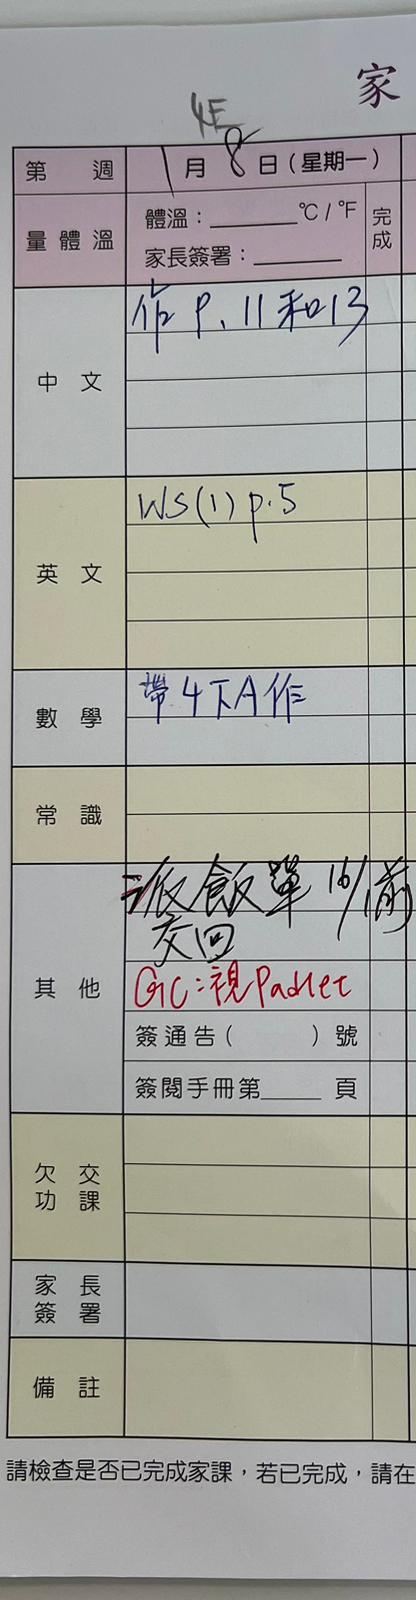 家
4E
第 週 1月8日(星期一)
量體溫 體溫：______°C / °F 完成
家長簽署：______
中文 作 P. 11 和 13
英文 WS(1) p.5
數學 帶4下A作
常識
其他 派飯單 16/1前
交回
GC:視Padlet
簽通告( )號
簽閱手冊第____頁
欠交功課
家長簽署
備註
請檢查是否已完成家課，若已完成，請在